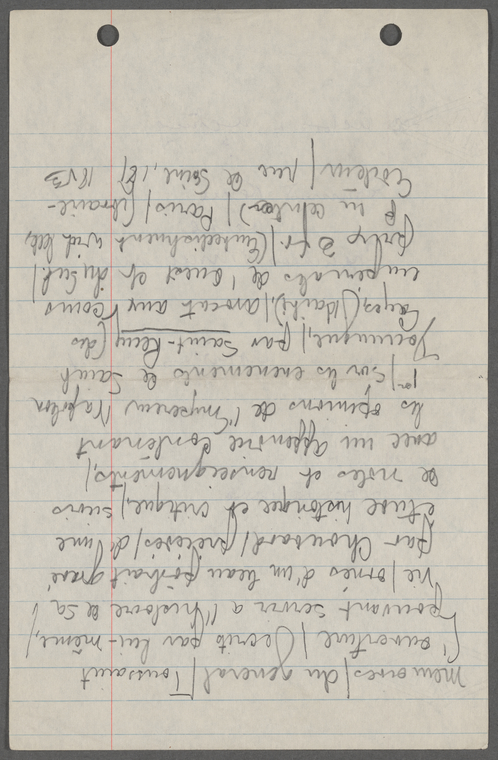 Memoires / du general / Toussaint
L'ouverture / Ecrits par lui-même, /
pouvant servir a l'histoire de sa /
vie / ornés d'un beau portrait gravé
par Choubard / précédés / d'une
étude historique et critique, / suivis
de notes et renseignements, /
avec un appendice contenant
les opinions de l'Empereur Napoleon
1er / sur les evenements de Saint
Domingue, / par Saint-Remy / (des
Cayes, Haiti), / avocat aux cours
imperiales de l'ouest et du Sud /
prix 3 fr. / (Embellishment with
in center) / Paris / Libraire-
Editeur / rue de Seine, 1853